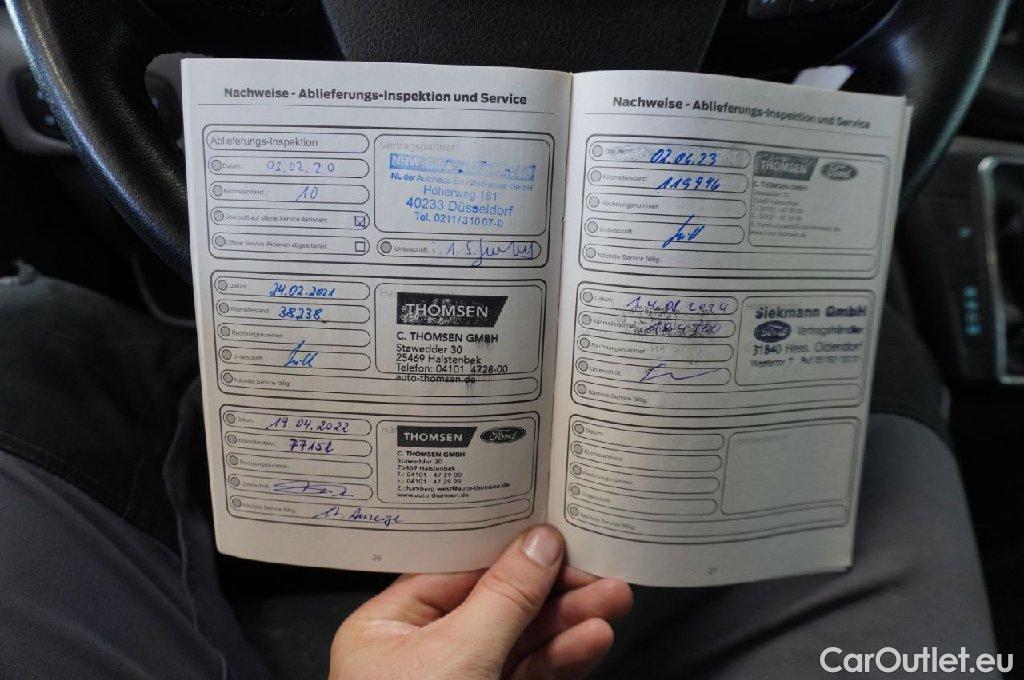 Nachweise - Ablieferungs-Inspektion und Service
Ablieferungs-Inspektion
Datum: 03.02.20
Kilometerstand: 10
Überprüft auf offene Service Aktionen
Offene Service Aktionen abgearbeitet
Vertragspartner
NL der Autohaus am Handweiser GmbH
Höherweg 181
40233 Düsseldorf
Tel. 0211/31007-0
Unterschrift:
Datum: 24.02.2021
Kilometerstand: 38238
Rechnungsnummer:
Unterschrift:
Nächste Service fällig:
THOMSEN
C. THOMSEN GMBH
Stawedder 30
25469 Halstenbek
Telefon: 04101 4728-00
auto-thomsen.de
Datum: 19.04.2022
Kilometerstand: 77152
Rechnungsnummer:
Unterschrift:
Nächste Service fällig: lt. Anzeige
THOMSEN Ford
C. THOMSEN GMBH
Stawedder 30
25469 Halstenbek
www.auto-thomsen.de
26
Nachweise - Ablieferungs-Inspektion und Service
Datum: 02.06.23
Kilometerstand: 119946
Rechnungsnummer:
Unterschrift:
Nächste Service fällig:
THOMSEN Ford
C. THOMSEN GMBH
Stawedder 30
25469 Halstenbek
www.auto-thomsen.de
Datum: 14.08.2024
Kilometerstand:
Rechnungsnummer:
Unterschrift:
Nächste Service fällig:
Siekmann GmbH
Ford Vertragshändler
31840 Hess. Oldendorf
Datum:
Kilometerstand:
Rechnungsnummer:
Unterschrift:
Nächste Service fällig:
27
CarOutlet.eu